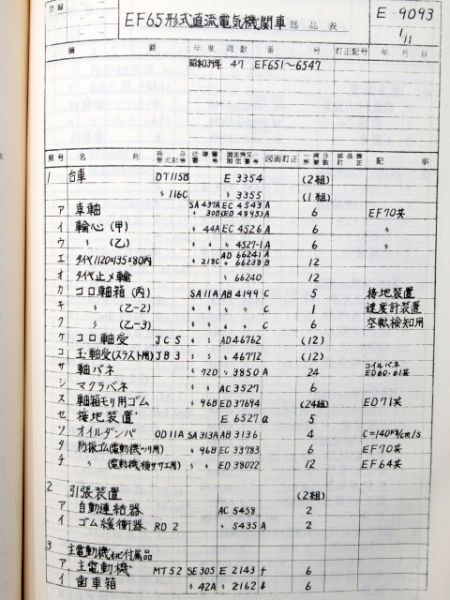 登録
EF65形式直流電気機関車 部品表
E-9093
1/11
摘 要 年度 両数 番 号 訂正記号 年月日
昭和39年 47 EF651〜6547
照号 名 称 部品形式記号 仕様書番号 図面番号 図面訂正 一両分所要数 部品表訂正 記 事
1 台車 DT115B E 3354 (2組)
〃 116C 〃 3355 (1組)
ア 車軸 SA439A EC 4543 A
〃 30B (ED 4895) A 6 EF70共
イ 輪心(甲) 〃 44A EC 4526 A 6 〃
ウ 〃 (乙) 〃 〃 4527-1 A 6 〃
エ タイヤ1120×135×80内 〃 218C AD 66241 A
〃 66238 B 12
オ タイヤ止メ輪 〃 66240 12
カ コロ軸箱(丙) SA11A AB 4199 C 5 接地装置
キ 〃 (乙-2) 〃 〃 〃 C 1 速度計装置
ク 〃 (乙-3) 〃 〃 〃 C 6 空転検知用
ケ コロ軸受 JC5 〃 AD46762 (12)
コ 玉軸受(スラスト用) JB3 〃 〃 46772 (12)
サ 軸バネ 〃 72D 〃 3850 A 24 コイルバネ
ED60・61共
シ マクラバネ 〃 〃 AC3527 6
ス 軸箱モリ用ゴム 〃 96B ED37694 (24組) ED71共
セ 接地装置 E 6527 a 5
ソ オイルダンパ OD11A SA313A AB 3136 4 C=140kg/cm/s
タ 防振ゴム(電動機ツリ用) 〃 96B EC 33783 6 EF70共
チ 〃 (電動機横ササエ用) 〃 〃 ED 38022 12 EF64共
2 引張装置 (2組)
ア 自動連結器 AC 5458 2
イ ゴム緩衝器 RD 2 〃 5435 A 2
3 主電動機および付属品
ア 主電動機 MT52 SE305 E 2143 f 6
イ 歯車箱 〃 42A 〃 2162 6